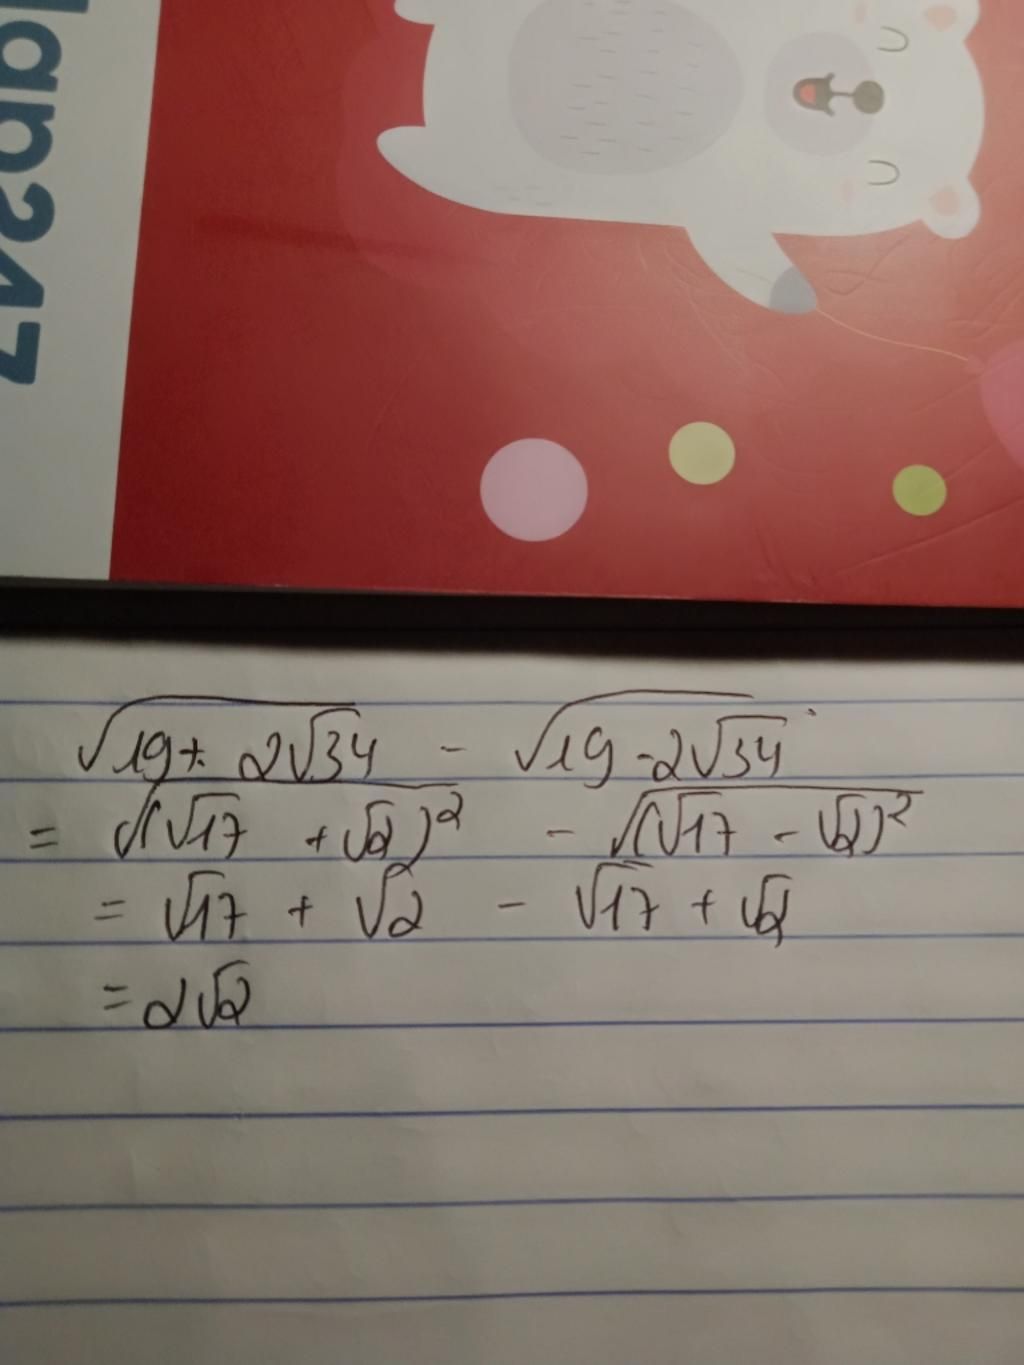 lap247
√(19+ 2√34) - √(19-2√34)
= √((√17 + √2)²) - √((√17 - √2)²)
= √17 + √2 - √17 + √2
= 2√2